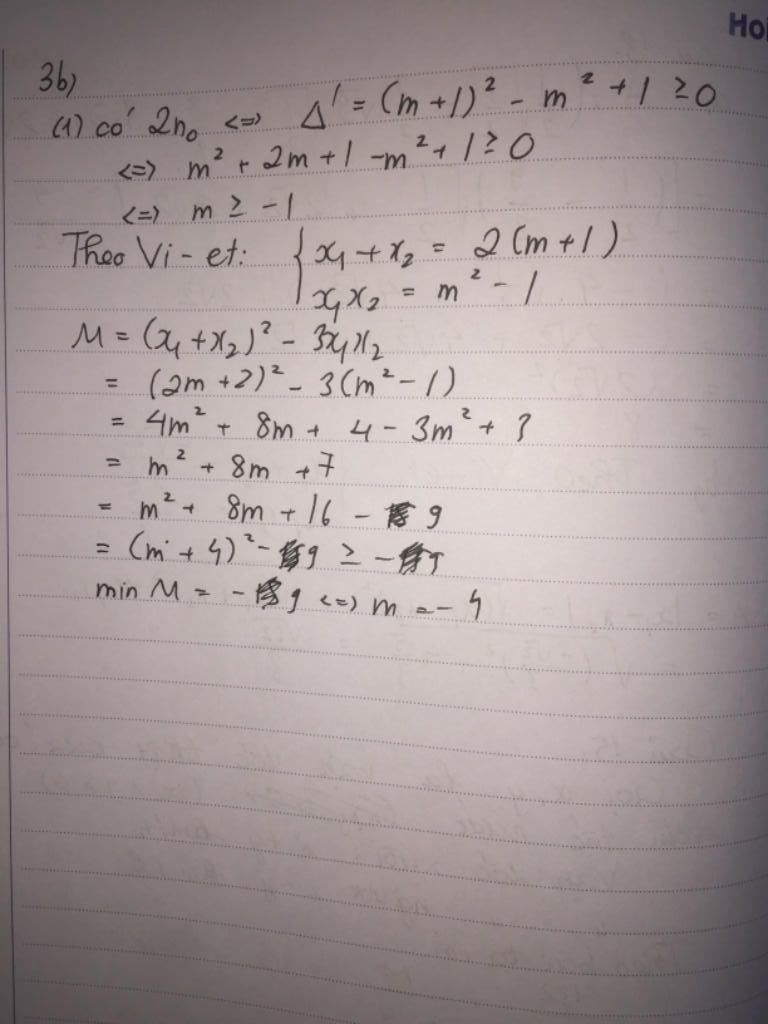 Hoi
3b)
(1) có 2n₀ <=> Δ' = (m+1)² - m² + 1 ≥ 0
<=> m² + 2m + 1 - m² + 1 ≥ 0
<=> m ≥ -1
Theo Vi-et: { x₁ + x₂ = 2(m+1)
x₁x₂ = m² - 1
M = (x₁ + x₂)² - 3x₁x₂
= (2m + 2)² - 3(m² - 1)
= 4m² + 8m + 4 - 3m² + 3
= m² + 8m + 7
= m² + 8m + 16 - 9
= (m + 4)² - 9 ≥ -9
min M = -9 <=> m = -4